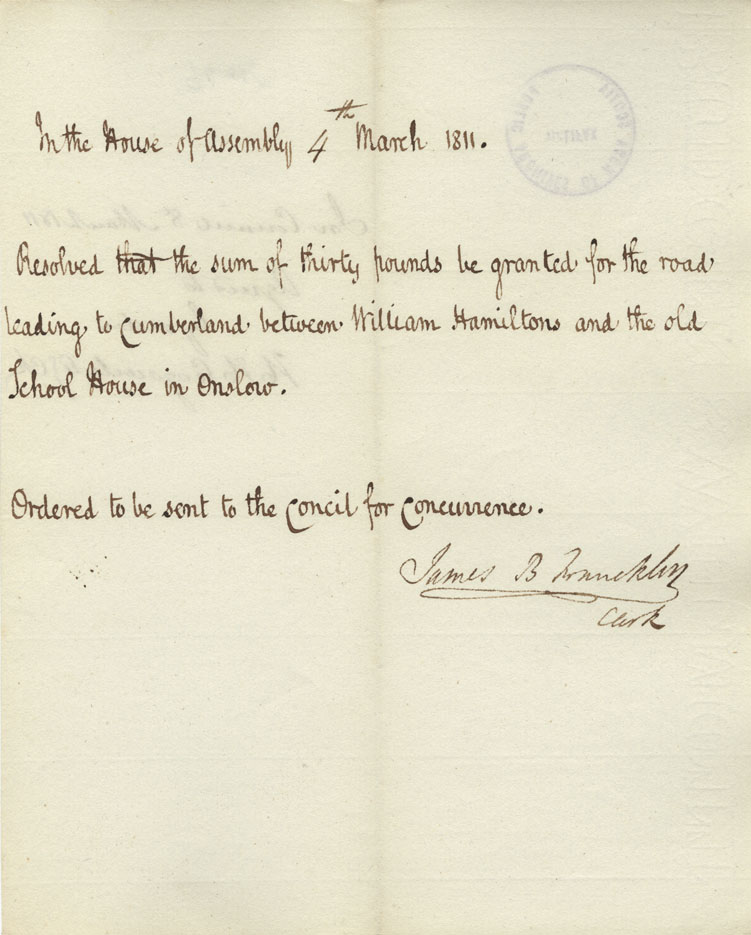 In the House of Assembly 4th March 1811.
Resolved that the sum of thirty pounds be granted for the road
leading to Cumberland between William Hamiltons and the old
School House in Onslow.
Ordered to be sent to the Concil for Concurrence.
James B Francklin
Clerk